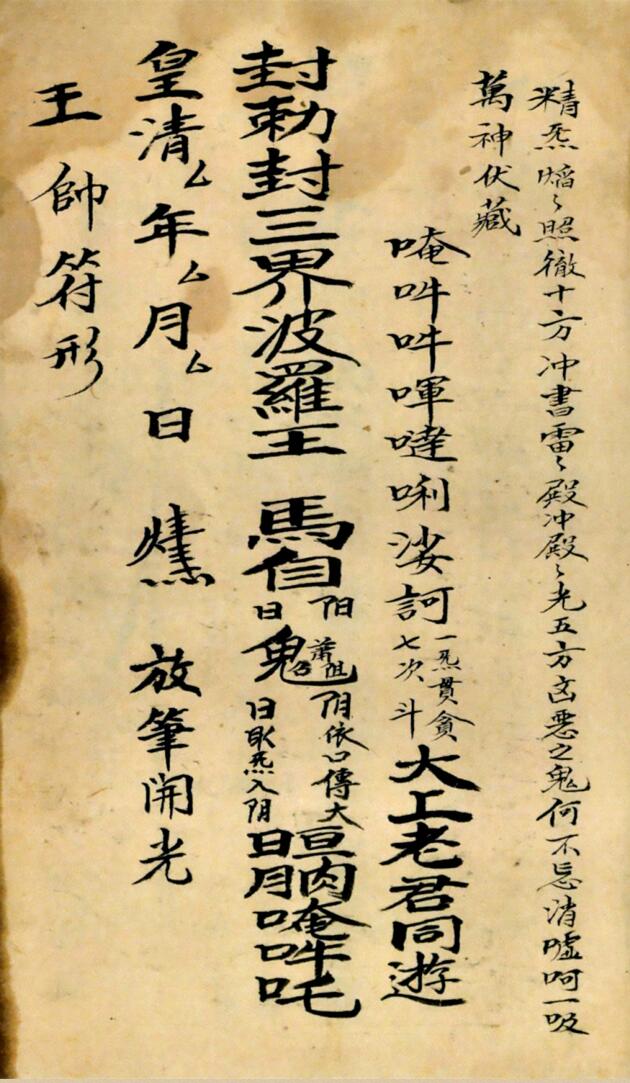 精炁熖〻照徹十方冲書雷〻殿冲殿〻光五方凶惡之鬼何不忘消嘘呵一吸
萬神伏藏
唵吽吽㖶噠唎娑訶一炁貫貪七次斗大上老君同遊
封勅封三界波羅王 馬自阳日鬼 阴依口傳大日耴炁入阴亘肉日月唵吽吒
皇清厶年厶月厶日 放筆開光
王帥符形